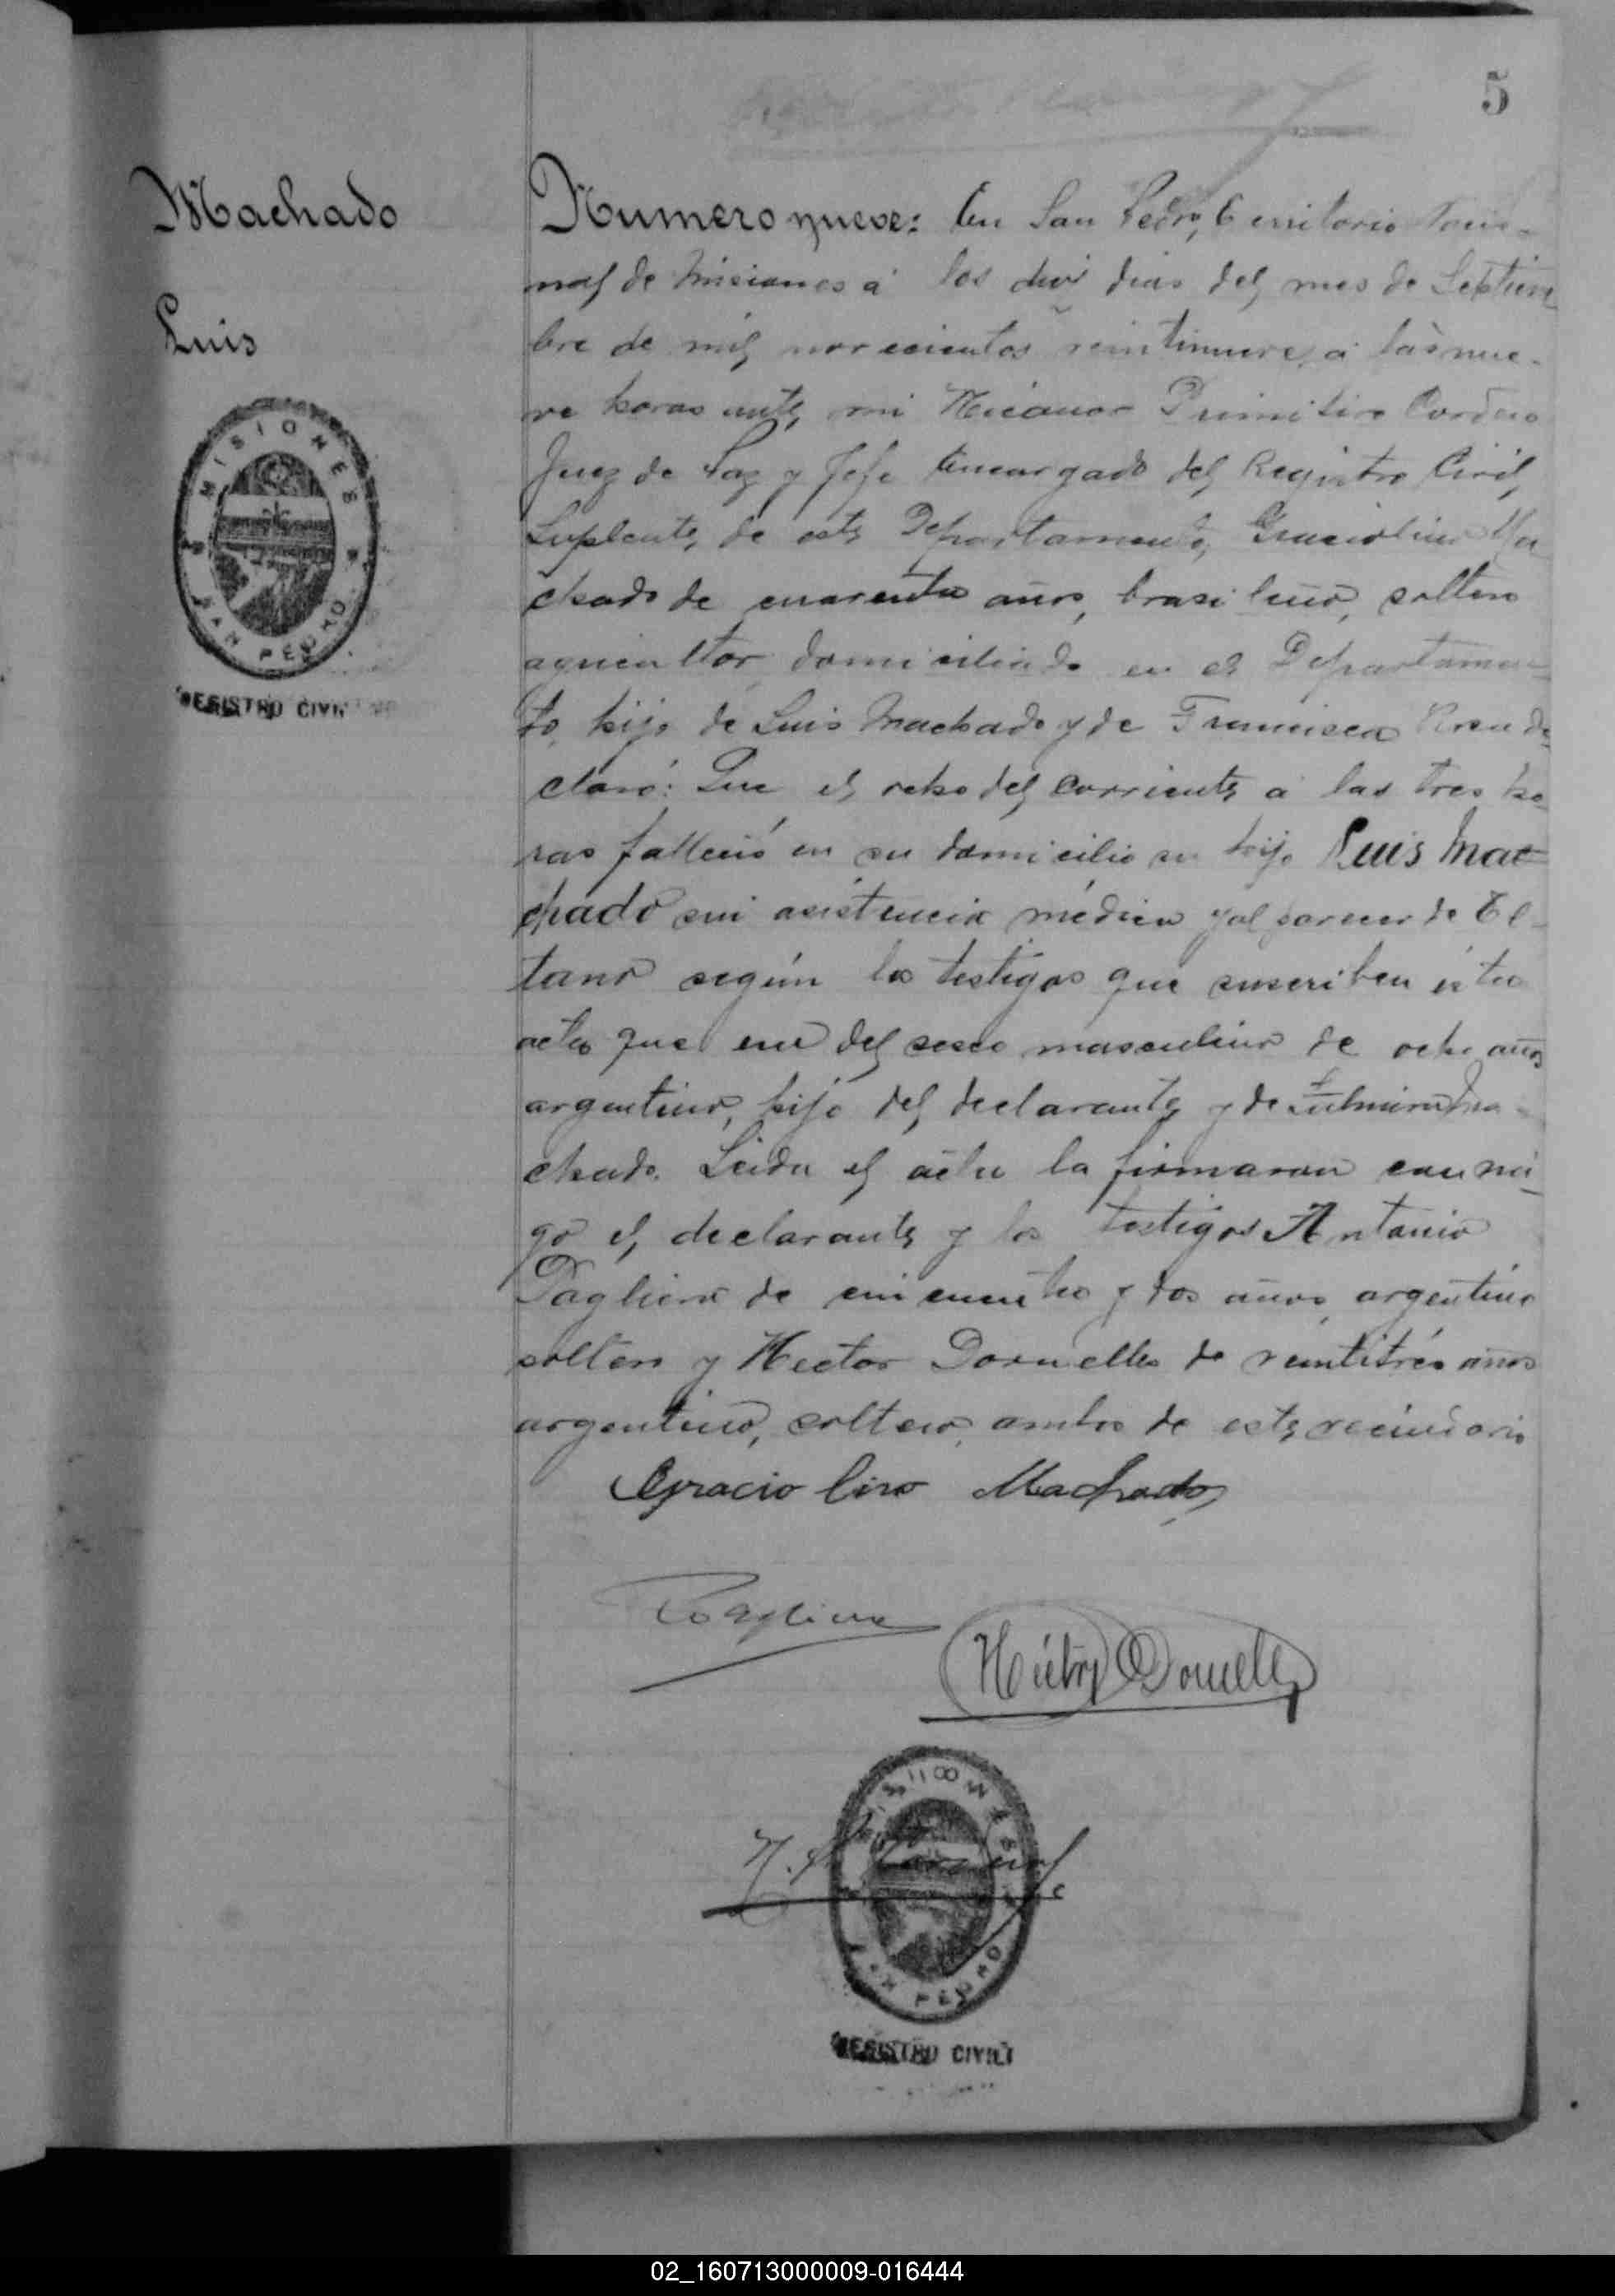 5
Machado
Luis
MISIONES
SAN PEDRO
REGISTRO CIVIL
Numero nueve: En San Pedro, Territorio Nacio-
nal de Misiones á los diez dias del mes de Septiem
bre de mil novecientos veintinueve, á las nue-
ve horas ante mi Nicanor Primitivo Cordero
Juez de Paz y Jefe Encargado del Registro Civil
Suplente, de este Departamento, Graciolino Ma
chado de cuarenta años, brasileño, soltero
agricultor domiciliado en el Departamen-
to, hijo de Luis Machado y de Francisca Rosa de
claró: Que el ocho del corriente á las tres ho
ras falleció en su domicilio su hijo Luis Mac
hado sin asistencia médica y al parecer de Té
tano según los testigos que suscriben ésta
acta que era del sexo masculino de ocho años
argentino, hijo del declarante y de Ma-
chado. Leida el acta la firmaron conmi
go el declarante y los testigos Antonio
Pagliera de cincuenta y dos años, argentino
soltero y Hector Dornelles de veintitrés años
argentino, soltero, ambos de este vecindario
Graciolino Machado
Pagliera
Héctor Dornelles
MISIONES
SAN PEDRO
REGISTRO CIVIL
02_160713000009-016444